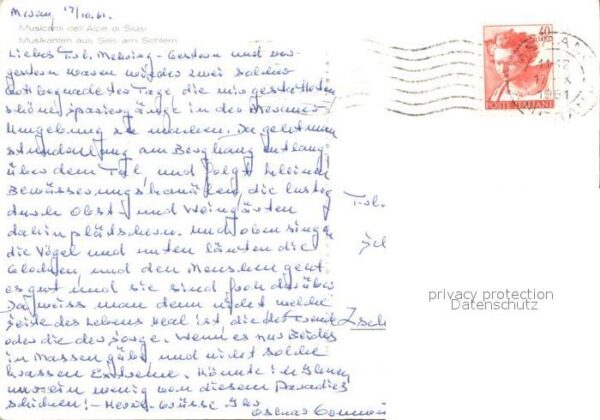 Meran, 17/10.61.
Musicanti dell'Alpe di Siusi
Musikanten aus Seis am Schlern
40
POSTE ITALIANE
1961
Liebes Frl. Gestern und vor-
gestern waren wieder zwei solche
gottbegnadete Tage, die mir gestatteten
schöne Spaziergänge in der Meraner
Umgebung zu machen. Da geht man
stundenlang am Berghang entlang
über dem Tal, und folgt kleinen
Bewässerungskanälen, die lustig
durch Obst- und Weingärten
dahinplätschern. Und oben singen
die Vögel und unten läuten die
Glocken, und den Menschen geht
es gut und sie sind froh darüber
Da weiss man denn nicht welche
Seite des Lebens real ist, die der Freude
oder die der Sorge. Wenn es nur Beides
in Massen gäbe, und nicht solche
krassen Extreme. Könnte ich Ihnen
nur ein wenig von diesem Paradies
schicken! - Herzl. Grüsse Ihr
Frl.
privacy protection
Datenschutz